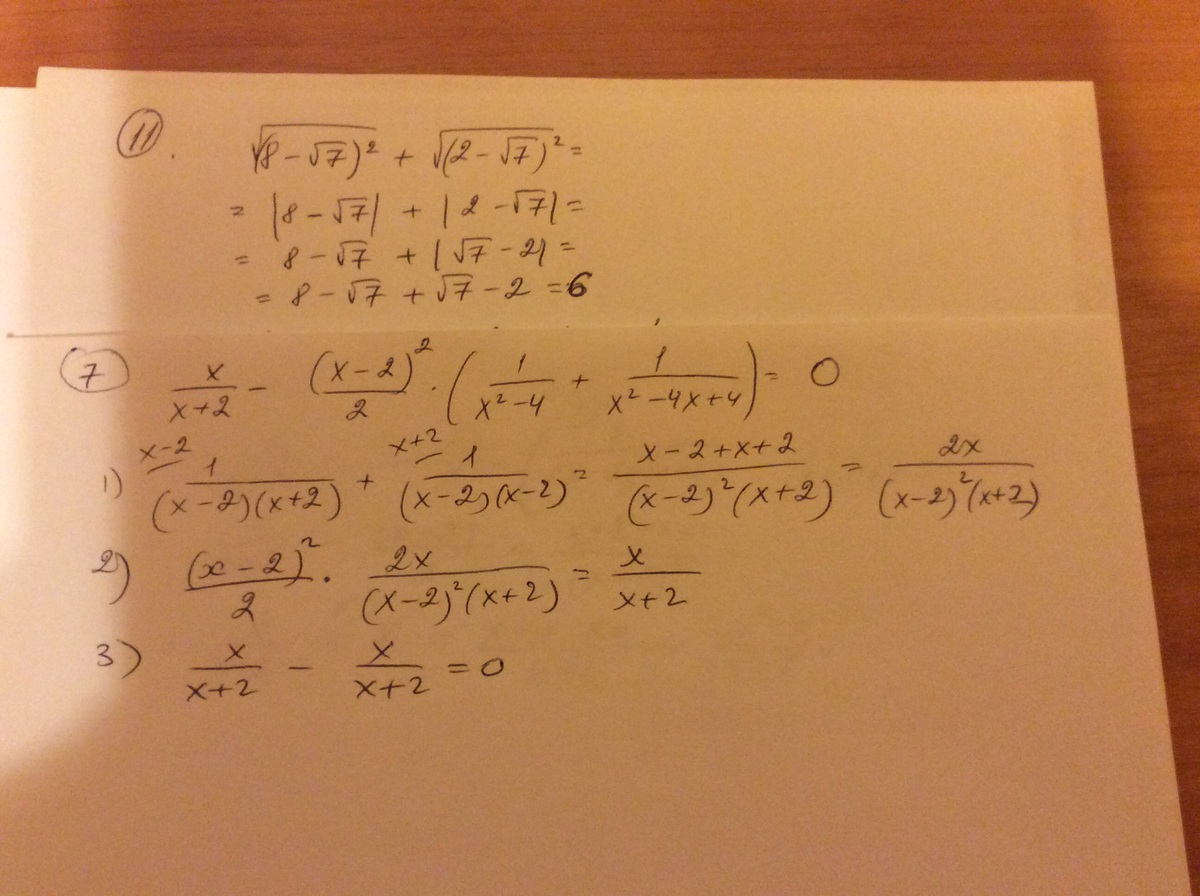 11. √(8-√7)² + √(2-√7)² =
= |8-√7| + |2-√7| =
= 8-√7 + |√7-2| =
= 8-√7 + √7-2 = 6
7 x/(x+2) - (x-2)²/2 · (1/(x²-4) + 1/(x²-4x+4)) = 0
x-2 x+2
1) 1/((x-2)(x+2)) + 1/((x-2)(x-2)) = (x-2+x+2)/((x-2)²(x+2)) = 2x/((x-2)²(x+2))
2) (x-2)²/2 · 2x/((x-2)²(x+2)) = x/(x+2)
3) x/(x+2) - x/(x+2) = 0